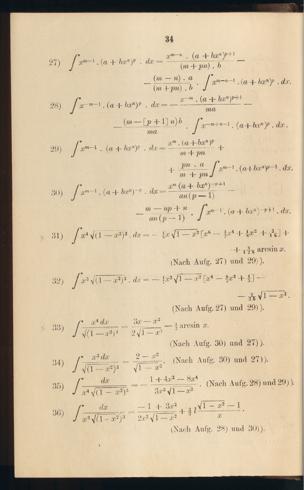 34
27) ∫ x^{m-1} . (a + bxⁿ)^p . dx = \frac{x^{m-n} . (a + bxⁿ)^{p+1}}{(m + pn) . b} —
— \frac{(m — n) . a}{(m + pn) . b} . ∫ x^{m-n-1} . (a + bxⁿ)^p . dx.
28) ∫ x^{-m-1} . (a + bxⁿ)^p . dx = — \frac{x^{-m} . (a + bxⁿ)^{p+1}}{ma} —
— \frac{(m — [p + 1] n) b}{ma} . ∫ x^{-m+n-1} . (a + bxⁿ)^p . dx.
29) ∫ x^{m-1} . (a + bxⁿ)^p . dx = \frac{x^m . (a + bxⁿ)^p}{m + pn} +
+ \frac{pn . a}{m + pn} ∫ x^{m-1} . (a + bxⁿ)^{p-1} . dx.
30) ∫ x^{m-1} . (a + bxⁿ)^{-p} . dx = \frac{x^m (a + bxⁿ)^{-p+1}}{an (p — 1)} —
— \frac{m — np + n}{an (p — 1)} . ∫ x^{m-1} . (a + bxⁿ)^{-p+1} . dx.
31) ∫ x⁴ √(1 — x²)³ . dx =
arcsin x.
(Nach Aufg. 27) und 29)).
32) ∫ x³ √(1 — x²)³ . dx =
(Nach Aufg. 27) und 29)).
33) ∫ \frac{x⁴ dx}{√(1 — x²)³} = \frac{3x — x³}{2 √1 — x²} — \frac{3}{2} arcsin x.
(Nach Aufg. 30) und 27)).
34) ∫ \frac{x³ dx}{√(1 — x²)³} = \frac{2 — x²}{√1 — x²} (Nach Aufg. 30) und 27)).
35) ∫ \frac{dx}{x⁴ √(1 — x²)³} = — \frac{1 + 4x² — 8x⁴}{3x³ √1 — x²} . (Nach Aufg. 28) und 29)).
36) ∫ \frac{dx}{x³ √(1 — x²)³} = \frac{— 1 + 3x²}{2x² √1 — x²} + \frac{3}{2} l \frac{√1 — x² — 1}{x} .
(Nach Aufg. 28) und 30)).